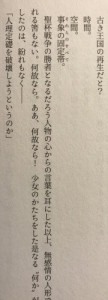 古き王国の再生だと？
時間。
空間。
事象の固定帯。
聖杯戦争の勝者となるだろう人物の心からの言葉を耳にした以上、無感情の人形で
れる筈もない。何故なら。ああ、何故なら！　少女のかたちをした是なる〝何か〟が
したのは、紛れもなく――
「人理定礎を破壊しようというのか」